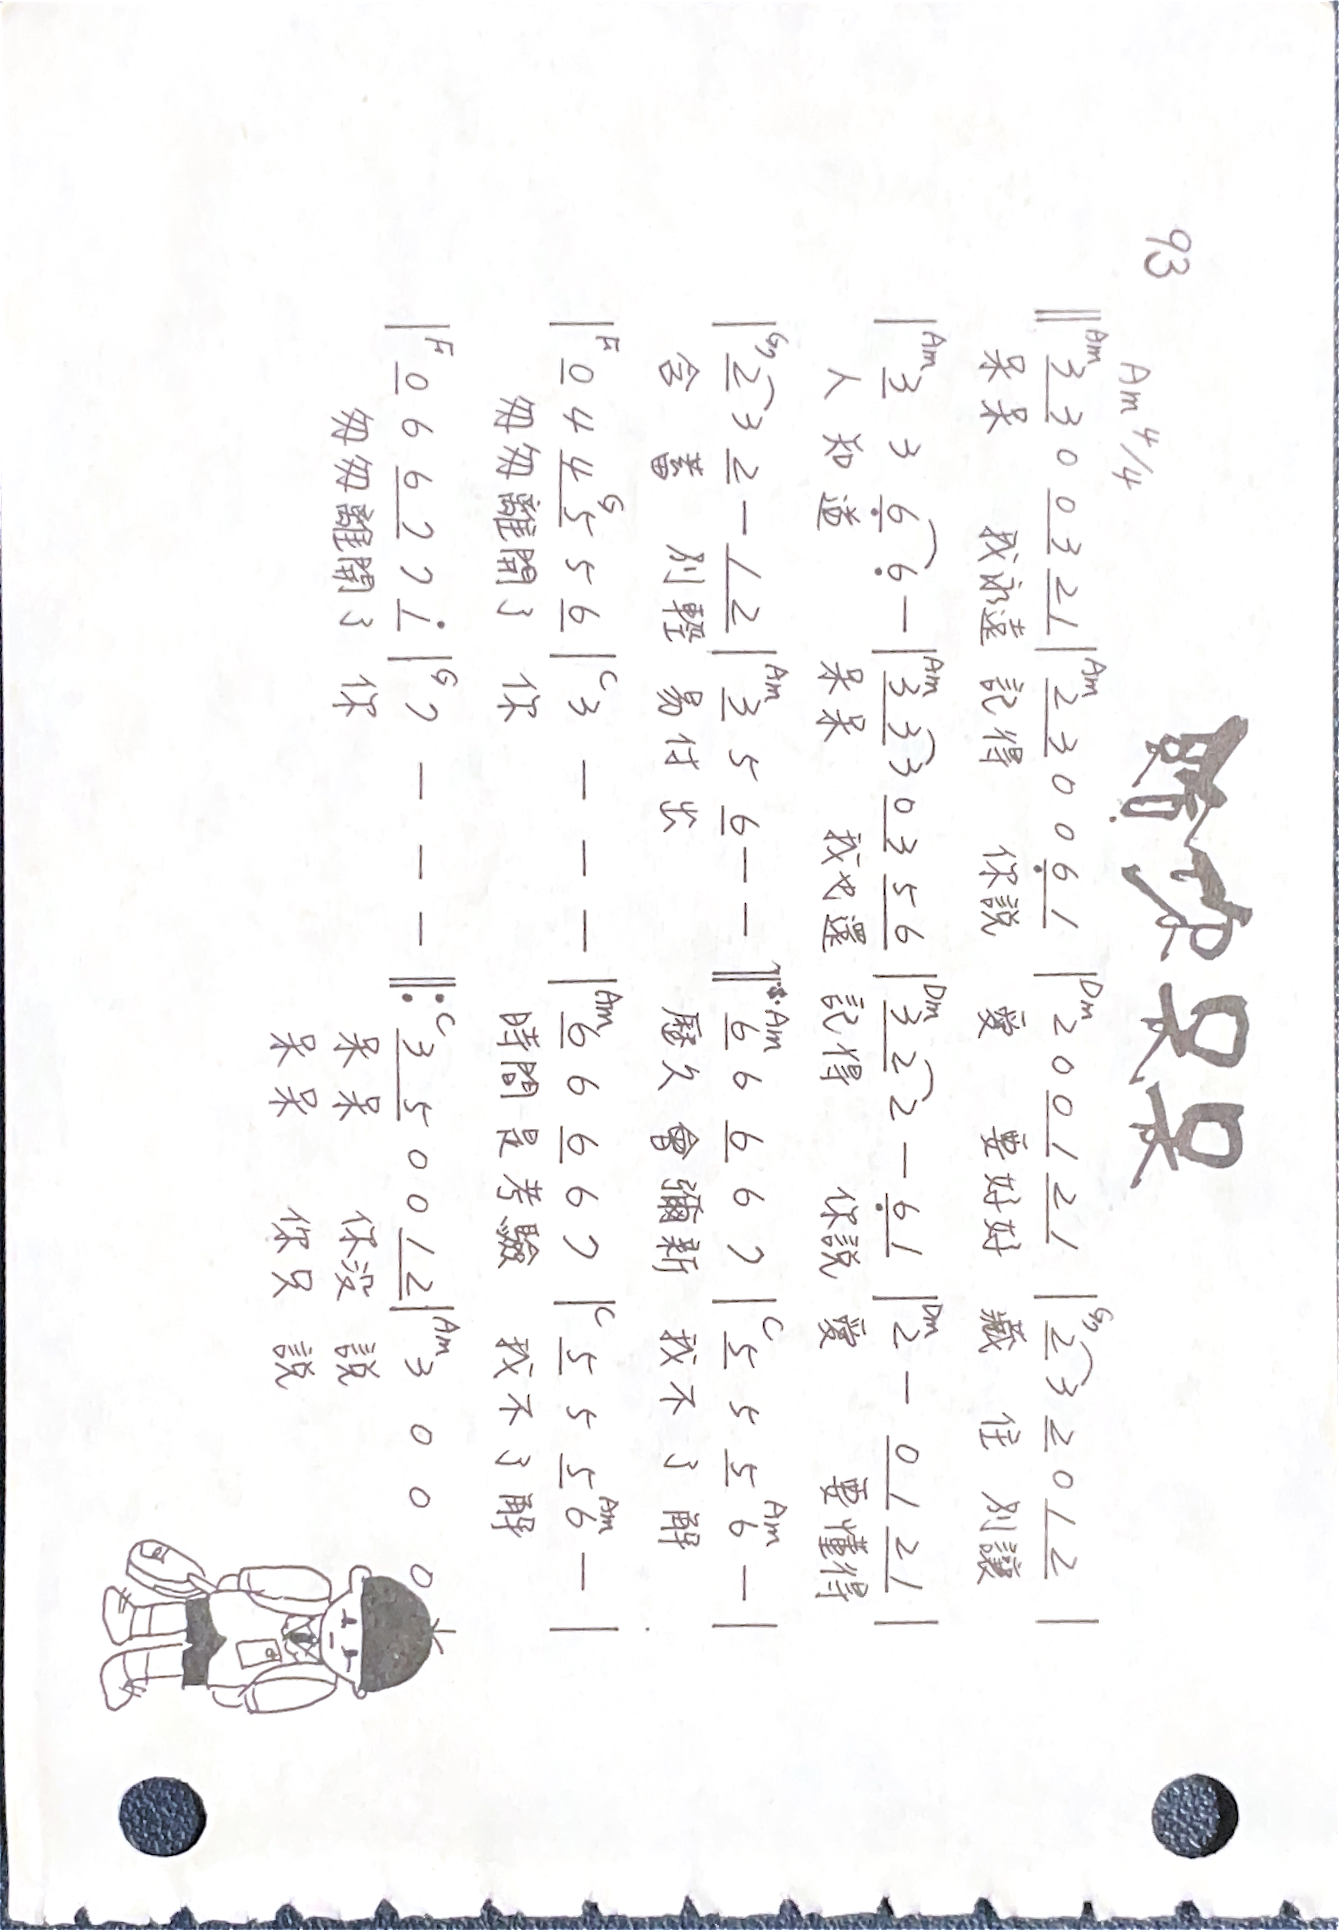 給你呆呆
93
Am 4/4
‖Am 3 3 0 0 3 2 1 |Am 2 3 0 0 6 1 |Dm 2 0 0 1 2 1 |G7 2 3 2 0 1 2 |
呆呆 我永遠 記得 你説 愛 要好好 藏 住 別讓
|Am 3 3 6 6 — |Am 3 3 3 0 3 5 6 |Dm 3 2 2 — 6 1 |Dm 2 — 0 1 2 1 |
人 知 道 呆呆 我也還 記得 你説 愛 要懂得
|G7 2 3 2 — 1 2 |Am 3 5 6 — — ‖Am 6 6 6 6 7 |C 5 5 5 Am 6 — |
含 蓄 別輕 易付出 歷久會彌新 我不了解
|F 0 4 4 G 5 5 6 |C 3 — — — |Am 6 6 6 6 7 |C 5 5 5 Am 6 — |
匆匆離開了 你 時間是考驗 我不了解
|F 0 6 6 7 7 i |G 7 — — — ‖: C 3 5 0 0 1 2 |Am 3 0 0 0
匆匆離開了 你 呆呆 你沒 説
呆呆 你只 説